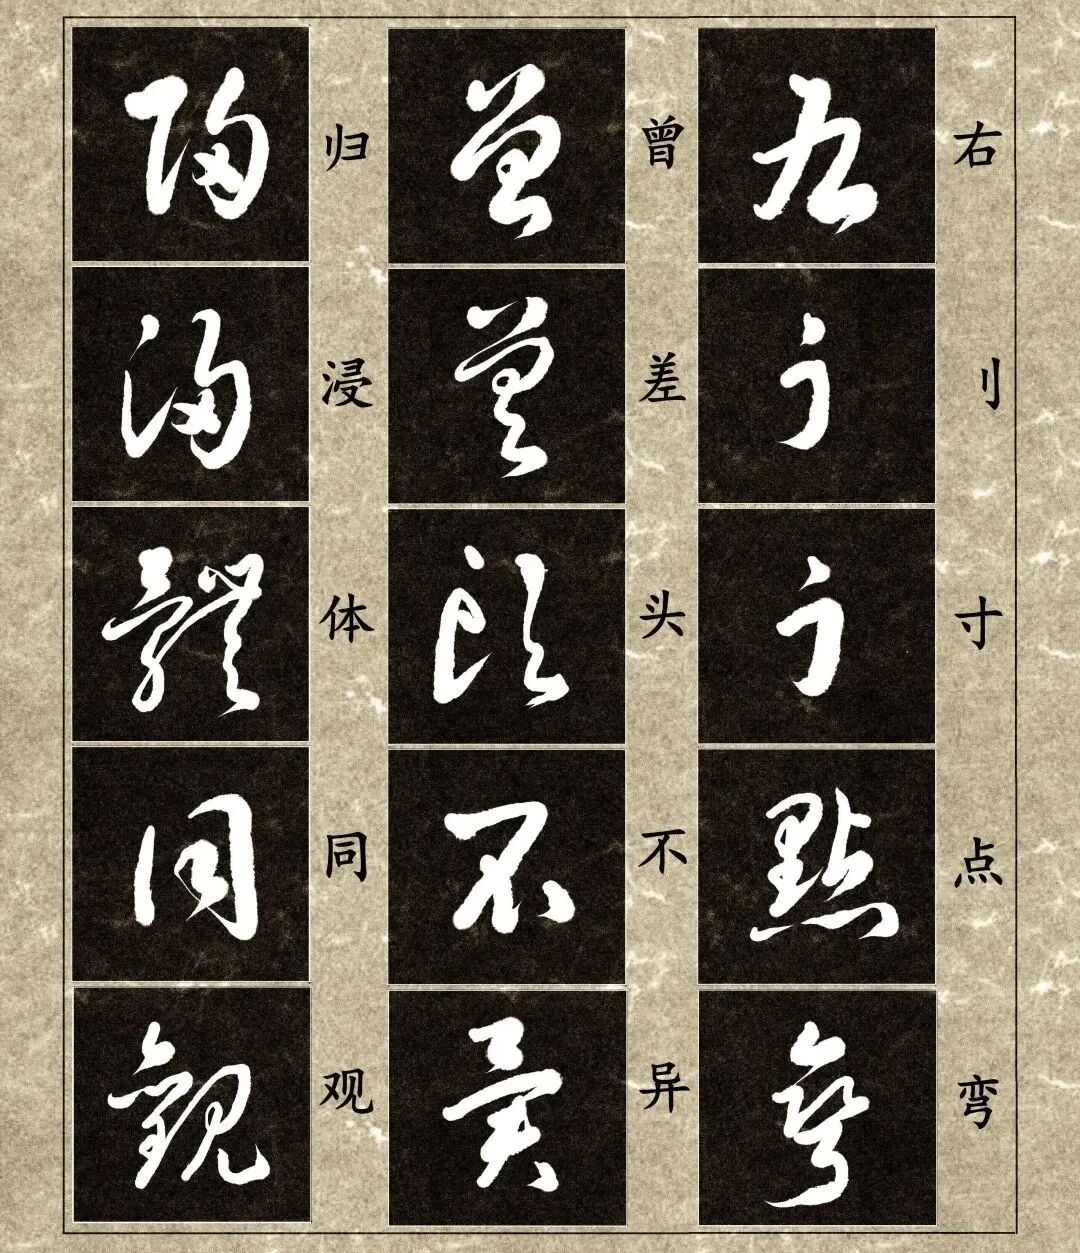 右刂寸点弯
曾差头不异
归浸体同观